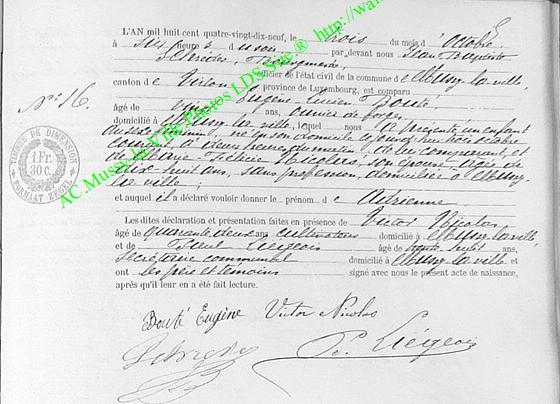 L'AN mil huit cent quatre-vingt-dix-neuf, le trois du mois d'Octobre
à six heures du soir par devant nous Jean Baptiste
Bourgmestre, officier de l'état civil de la commune de Mussy la ville,
canton de Virton province de Luxembourg, est comparu
N° 16. Eugène Lucien Bouté,
âgé de vingt ans, ouvrier de forges,
domicilié à Mussy la ville, lequel nous a présenté un enfant
du sexe féminin, né en son domicile
courant à deux heures du matin de lui comparant, et
de Marie Félicie Nicolas, son épouse âgée de
dix-huit ans, sans profession, domiciliée à Mussy
la ville;
et auquel il a déclaré vouloir donner le prénom de Adrienne
Les dites déclaration et présentation faites en présence de Victor Nicolas
âgé de quarante deux ans cultivateur domicilié à Mussy la ville,
et de Paul Liégeois âgé de ans,
secrétaire communal domicilié à Mussy la ville et
ont les père et témoins signé avec nous le présent acte de naissance,
après qu'il leur en a été fait lecture.
Bouté Eugène Victor Nicolas
P. Liégeois
TIMBRE DE DIMENSION
1 Fr.
30 c.
FORMAAT ZEGEL
AC.Mussy-la-Ville Photos LDS Sue.® http://wa